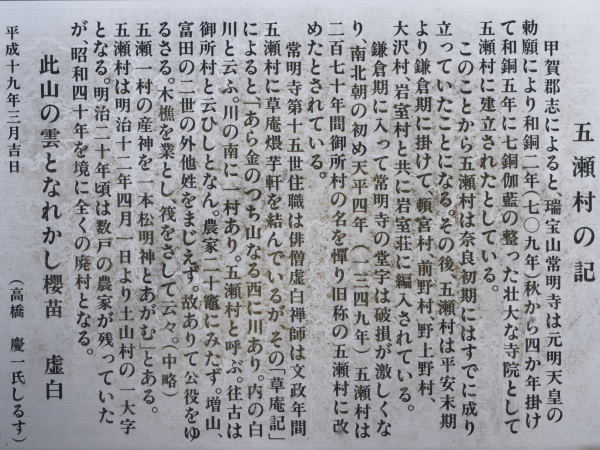 五瀬村の記
甲賀郡志によると、瑞宝山常明寺は元明天皇の
勅願により和銅二年（七〇九年）秋から四か年掛け
て和銅五年に七銅伽藍の整った壮大な寺院として
五瀬村に建立されたとしている。
このことから五瀬村は奈良初期にはすでに成り
立っていたことになる。その後五瀬村は平安末期
より鎌倉期に掛けて、頓宮村、前野村、野上野村、
大沢村、岩室村と共に岩室荘に編入されている。
鎌倉期に入って常明寺の堂宇は破損が激しくな
り、南北朝の初め天平四年（一三四九年）五瀬村は
二百七十年間御所村の名を憚り旧称の五瀬村に改
めたとされている。
常明寺第十五世住職は俳僧虚白禅師は文政年間
五瀬村に草庵煨芋軒を結んでいるが、その「草庵記」
によると「あら金のつち山なる西に川あり。内の白
川と云ふ。川の南に一村あり。五瀬村と呼ぶ。往古は
御所村と云ひしとなん。農家二十竈にみたず。増山、
富田の二世の外他姓をまじえず。故ありて公役をゆ
るさる。木樵を業とし、筏をさして云々。（中略）
五瀬一村の産神を一本松明神とあがむ」とある。
五瀬村は明治十二年四月一日より土山村の一大字
となる。明治二十年頃は数戸の農家が残っていた
が、昭和四十年を境に全くの廃村となる。
此山の雲となれかし櫻苗　虚白
平成十九年三月吉日　（高橋　慶一氏しるす）